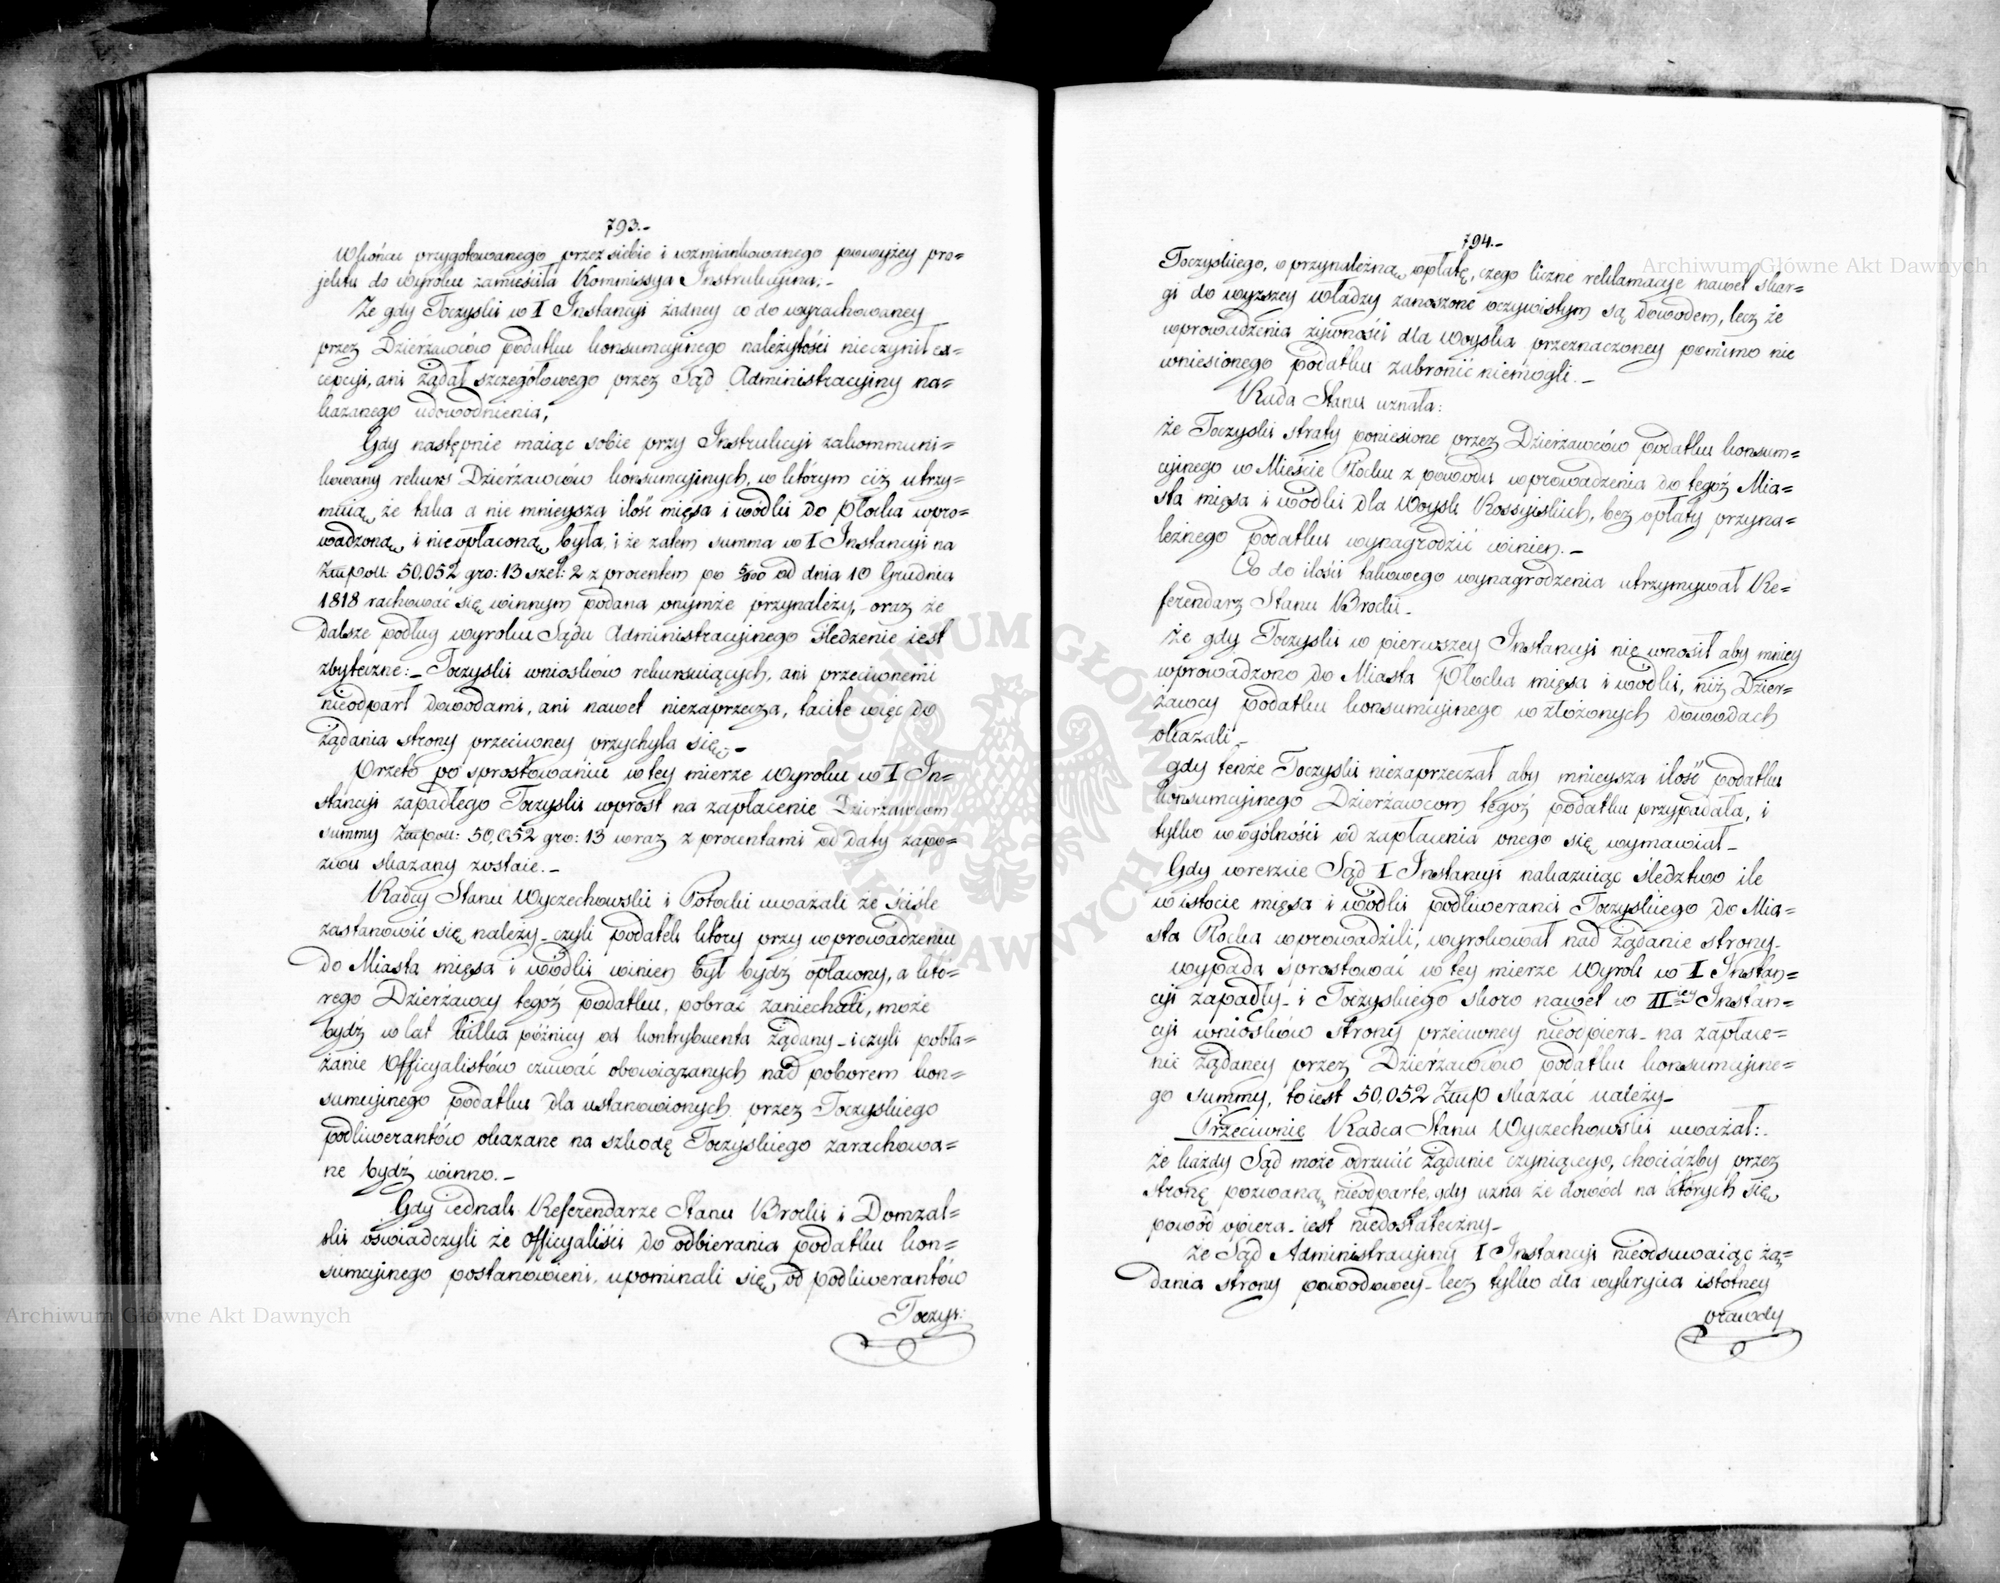 793.-
W końcu przygotowanego przez siebie i wzmiankowanego powyżey pro=
jektu do wyroku zamieściła Kommissya Instrukcyina:-
Że gdy Toczyski w I Instancyi żadney co do wyrachowaney
przez Dzierżawców podatku konsumcyinego należytości nieczynił ex=
cepcyi, ani żądał szczegółowego przez Sąd Administracyiny na=
kazanego udowodnienia,
Gdy następnie maiąc sobie przy Instrukcyi zakommuni=
kowany rekurs Dzierżawców konsumcyinych, w którym ciż utrzy=
muią, że taka a nie mnieysza ilość mięsa i wódki do Płocka wpro=
wadzoną i nieopłaconą była, i że zatem summa w I Instancyi na
Złłpoll: 50,052 gro: 13 szel: 2 z procentem po 5/100 od dnia 10 Grudnia
1818 rachować się winnym podana onymże przynależy, oraz że
dalsze podług wyroku Sądu Administracyinego śledzenie iest
zbyteczne:- Toczyski wniosków rekursuiących, ani przeciwnemi
nieodparł dowodami, ani nawet niezaprzecza, tacite więc do
żądania strony przeciwney przychyla się,-
Przeto po sprostowaniu w tey mierze wyroku w I In=
stancyi zapadłego Toczyski wprost na zapłacenie Dzierżawcom
summy Złłpoll: 50,052 gro: 13 wraz z procentami od daty zapo=
zwu skazany zostaie.-
Radcy Stanu Wyczechowski i Potocki uważali że ściśle
zastanowić się należy - czyli podatek który przy wprowadzeniu
do Miasta mięsa i wódki winien był bydź opłacony, a któ=
rego Dzierżawcy tegoż podatku, pobrać zaniechali, może
bydź w lat kilka późnicy od kontrybuenta żądany - i czyli pobła=
żanie Officyalistów czuwać obowiązanych nad poborem kon=
sumcyinego podatku dla ustanowionych przez Toczyskiego
podliwerantów okazane na szkodę Toczyskiego zarachowa=
ne bydź winno.-
Gdy iednak Referendarze Stanu Brocki i Domzal=
ski oświadczyli że Officyaliści do odbierania podatku kon=
sumcyinego postanowieni, upominali się od podliwerantów
Toczys:
794.-
Toczyskiego, o przynależną opłatę, czego liczne reklamacye nawet skar=
gi do wyższey władzy zanoszone oczywistym są dowodem, lecz że
wprowadzenia żywności dla woyska przeznaczoney pomimo nie
wniesionego podatku zabronić niemogli.-
Rada Stanu uznała:
że Toczyski straty poniesione przez Dzierżawców podatku konsum=
cyinego w Mieście Płocku z powodu wprowadzenia do tegoż Mia=
sta mięsa i wódki dla Woysk Rossyiskich, bez opłaty przyna=
leżnego podatku wynagrodzić winien.-
Co do ilości takowego wynagrodzenia utrzymywał Re=
ferendarz Stanu Brocki-
że gdy Toczyski w pierwszey Instancyi nie wnosił aby mniey
wprowadzono do Miasta Płocka mięsa i wódki, niż Dzier=
żawcy podatku konsumcyinego w złożonych dowodach
okazali,-
gdy tenże Toczyski niezaprzeczał aby mnieysza ilość podatku
konsumcyinego Dzierżawcom tegoż podatku przypadała, i
tylko w ogólności od zapłacenia onego się wymawiał-
Gdy wreszcie Sąd I Instancyi nakazuiąc śledztwo ile
w istocie mięsa i wódki podliweranci Toczyskiego do Mia=
sta Płocka wprowadzili, wyrokował nad żądanie strony-
wypada sprostować w tey mierze Wyrok w I Instan=
cyi zapadły - i Toczyskiego skoro nawet w II iey Instan=
cyi wniosków strony przeciwney nieodpiera - na zapłace=
nie żądaney przez Dzierżawców podatku konsumcyine=
go summy, to iest 50,052 Złłp skazać należy-
Przeciwnie Radca Stanu Wyczechowski uważał:-
że każdy Sąd może odrzucić żądanie czyniącego, chociażby przez
stronę pozwaną nieodparte, gdy uzna że dowód na których się
powód opiera - iest niedostateczny-
że Sąd Administracyiny I Instancyi nieodsuwaiąc żą=
dania strony powodowey - lecz tylko dla wykrycia istotney
prawdy
Archiwum Główne Akt Dawnych
Archiwum Główne Akt Dawnych
ARCHIWUM GŁÓWNE AKT DAWNYCH